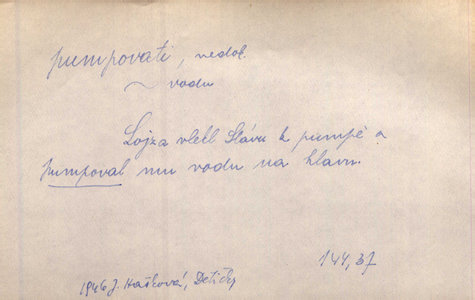 pumpovati, nedok.
~ vodu
Lojza vlekl Slávu k pumpě a
pumpoval mu vodu na hlavu.
144,37
1946 J. Hašková, Dětičky